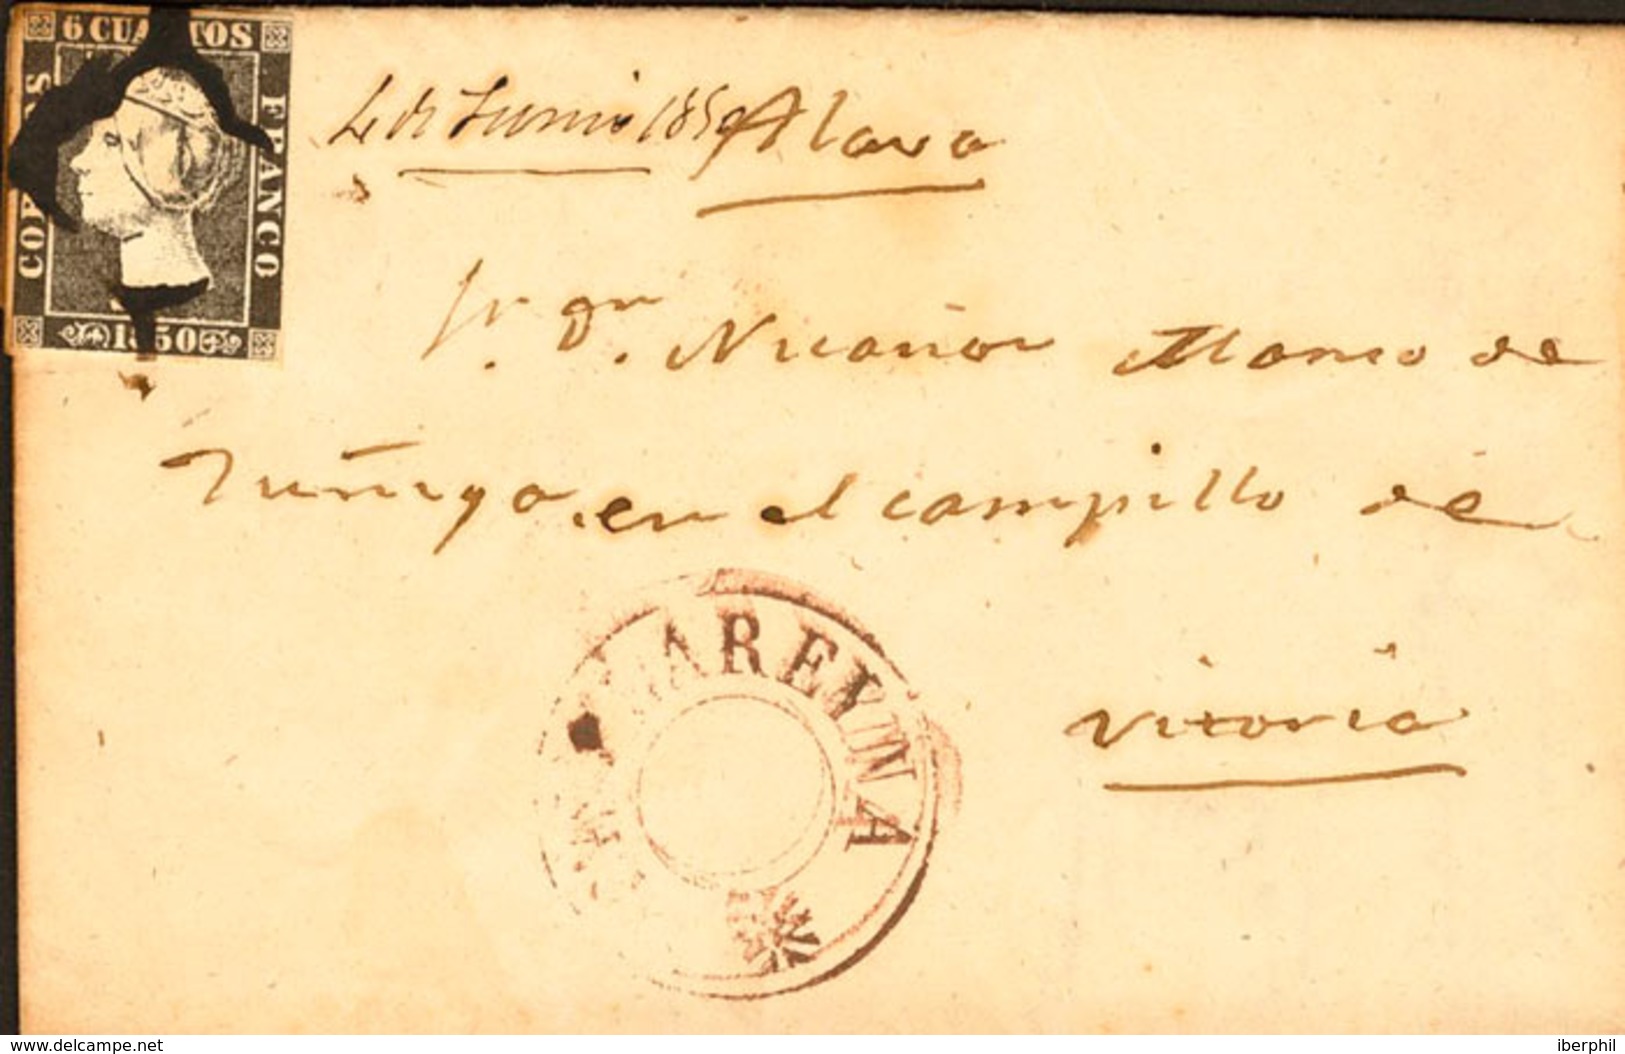 6 CUARTOS
CORREOS
FRANCO
1850
4 de Junio 1850
Alava
Sr. Dn. Nicanor Alonso de
Zuñiga. en el campillo de
Vitoria
VILLAREJINA
www.delcampe.net
iberphil